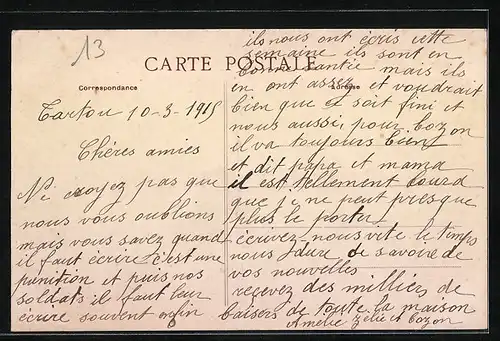 13
CARTE POSTALE
Correspondance
Adresse
Tartou 10-3-1915
Chères amies
Ne croyez pas que
nous vous oublions
mais vous savez quand
il faut écrire c'est une
punition et puis nos
soldats il faut leur
écrire souvent enfin
ils nous ont écris cette
semaine ils sont en
bonne santée mais ils
en ont assez et voudrait
bien que se soit fini et
nous aussi, pour Cozon
il va toujours bien
et dit papa et mama
il est tellement lourd
que je ne peut presque
plus le porter
écrivez-nous vite le temps
nous dure de savoire de
vos nouvelles
recevez des milliers de
baisers de toute la maison
Amélie Zélie et Cozon